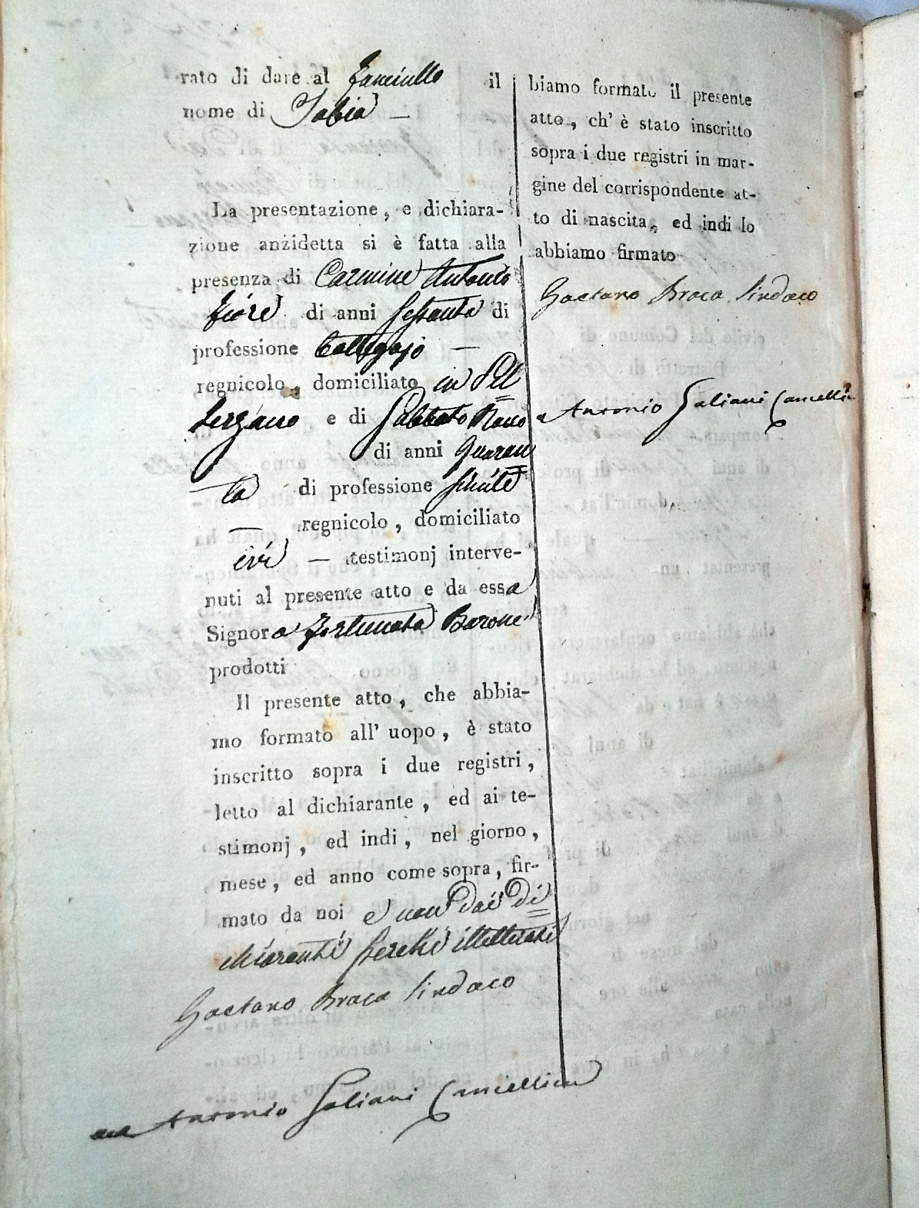 rato di dare al fanciullo il
nome di Tobia —
La presentazione, e dichiara-
zione anzidetta si è fatta alla
presenza di Carmine Antonio
Fiore di anni Settanta di
professione
regnicolo, domiciliato in Pel
lezzano e di Sabbato
di anni Quaran
ta di professione simile
— regnicolo, domiciliato
ivi — testimonj interve-
nuti al presente atto e da essa
Signora Fortunata Barone
prodotti
Il presente atto, che abbia-
mo formato all' uopo, è stato
inscritto sopra i due registri,
letto al dichiarante, ed ai te-
stimonj, ed indi, nel giorno,
mese, ed anno come sopra, fir-
mato da noi e non dai di
chiaranti perchè illetterati
Gaetano Braca Sindaco
Antonio Galiani Cancelliere
biamo formato il presente
atto, ch' è stato inscritto
sopra i due registri in mar-
gine del corrispondente at-
to di nascita, ed indi lo
abbiamo firmato
Gaetano Braca Sindaco
Antonio Galiani Cancelli